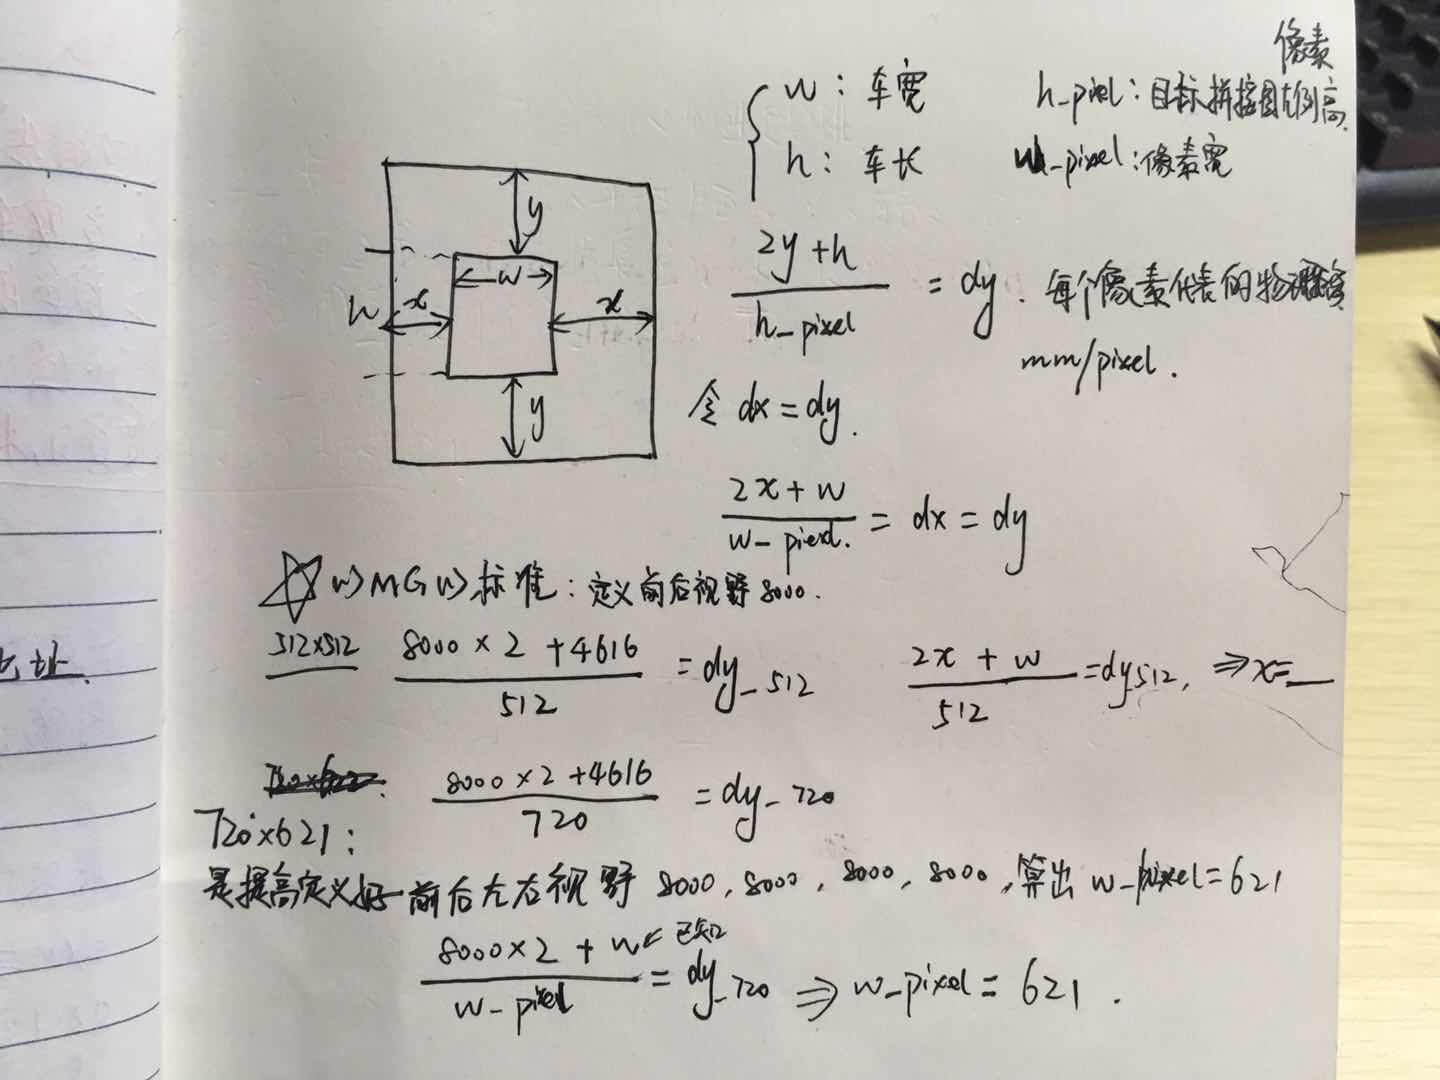 像素
w：车宽
h_pixel：目标拼接图左侧高.
h：车长
w_pixel：像素宽
y
w
h
x
x
y
2y+h / h_pixel = dy. 每个像素代表的物理
mm/pixel.
令 dx=dy.
2x+w / w_pixel. = dx = dy
MG 标准：定义前后视野8000.
512×512
8000×2+4616 / 512 = dy_512
2x+w / 512 = dy512, ⇒x=__
8000×2+4616 / 720 = dy_720
720×621：
是提高定义好 前后左右视野 8000, 8000, 8000, 8000, 算出 w_pixel=621
8000×2+w ↙已知 / w_pixel = dy_720 ⇒ w_pixel = 621.
址.